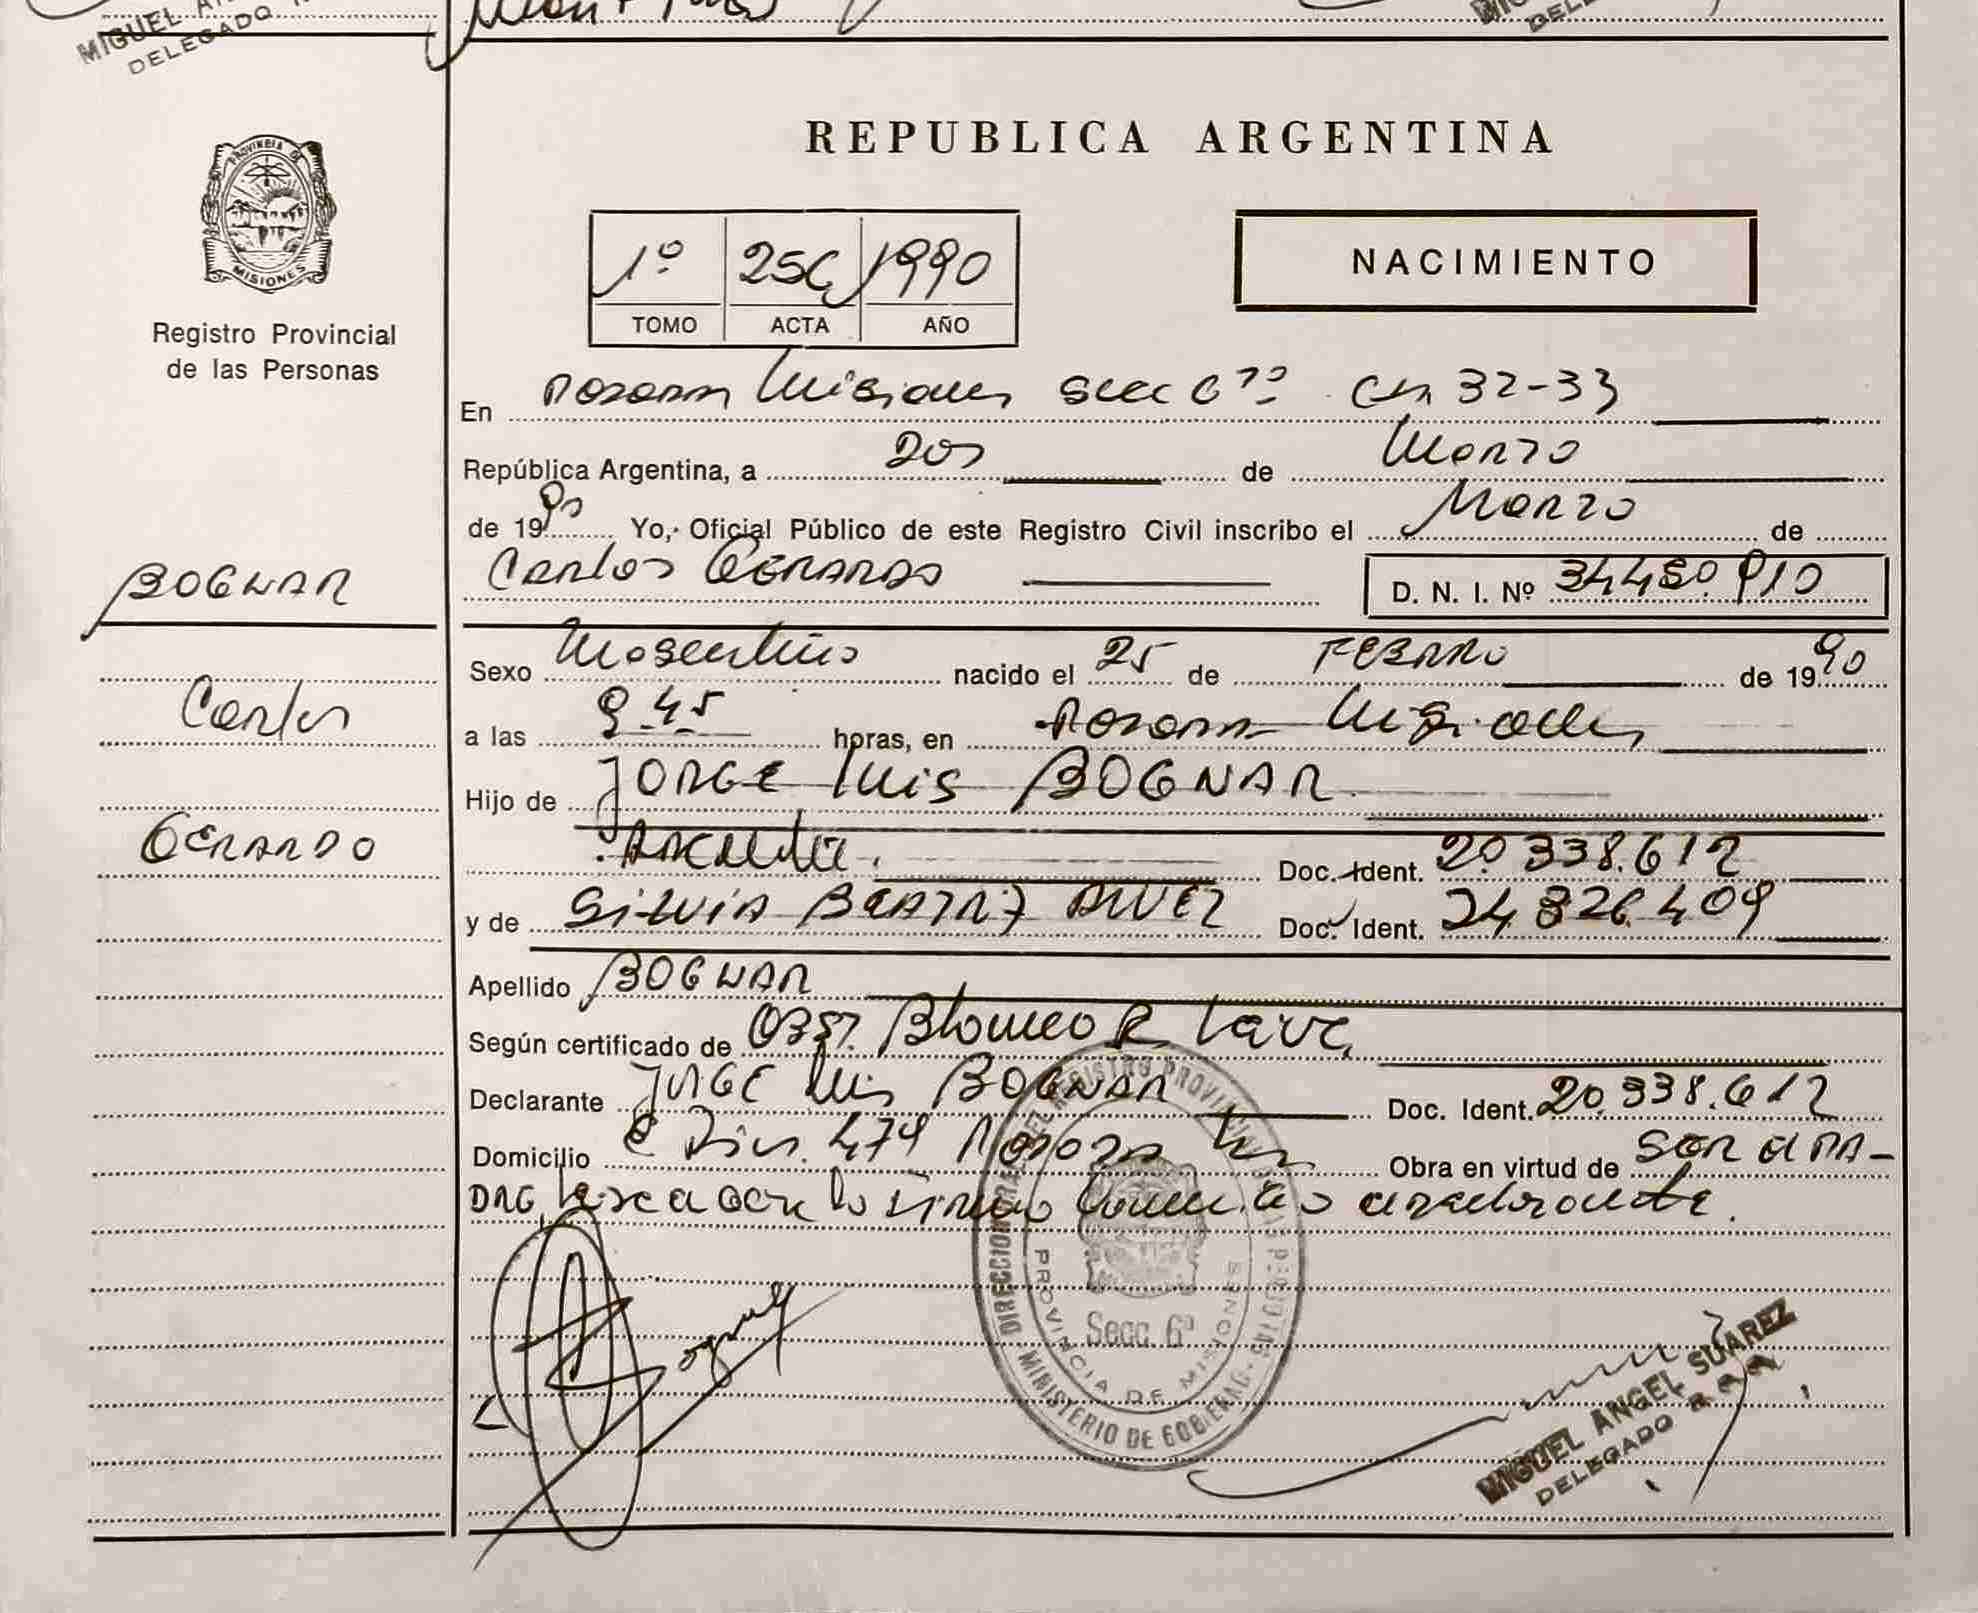 MIGUEL
DELEGADO
REPUBLICA ARGENTINA
PROVINCIA DE
MISIONES
Registro Provincial
de las Personas
1º 256 1990
TOMO ACTA AÑO
NACIMIENTO
En Posadas Misiones Secc 6ta Ch 32-33
República Argentina, a dos de Marzo
de 1990 Yo, Oficial Público de este Registro Civil inscribo el Nacimiento de
Carlos GERARDO D. N. I. Nº 34.480.910
BOGNAR
Carlos
GERARDO
Sexo Masculino nacido el 25 de FEBRERO de 1990
a las 9.45 horas, en Posadas Misiones
Hijo de JORGE Luis BOGNAR
Argentino Doc. Ident. 20.338.612
y de SiLViA BEATRIZ ALVEZ Doc. Ident. 24.326.409
Apellido BOGNAR
Según certificado de Obst. Blanca R.
Declarante JORGE Luis BOGNAR Doc. Ident. 20.338.612
Domicilio 479 Posadas Obra en virtud de SER EL PA-
DRE, Leída el acta la firma conmigo el declarante.
DIRECCION GRAL. DEL REGISTRO PROVINCIAL DE LAS PERSONAS
MINISTERIO DE GOBIERNO
PROVINCIA DE MISIONES
Secc. 6ª
MIGUEL ANGEL SUAREZ
DELEGADO